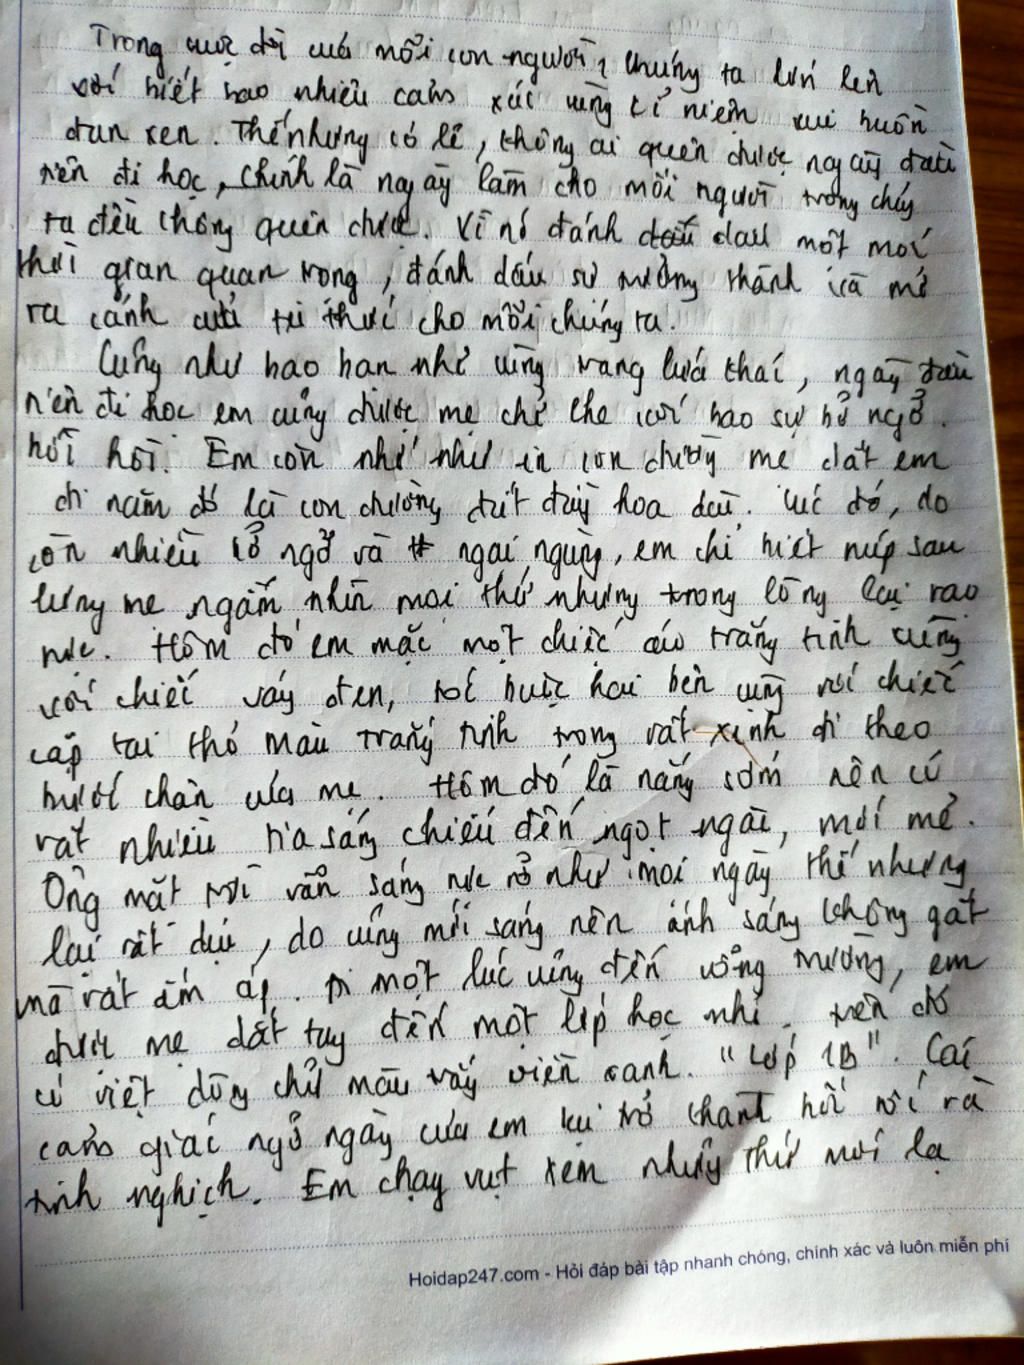 Trong cuộc đời của mỗi con người, chúng ta lớn lên
với biết bao nhiêu cảm xúc cùng kỉ niệm vui buồn
đan xen. Thế nhưng có lẽ, không ai quên được ngày đầu
tiên đi học, chính là ngày làm cho mỗi người trong chúng
ta đều không quên được. Vì nó đánh dấu một mốc
thời gian quan trọng, đánh dấu sự trưởng thành và mở
ra cánh cửa tri thức cho mỗi chúng ta.
Cũng như bao bạn nhỏ cùng trang lứa khác, ngày đầu
tiên đi học em cũng được mẹ chở che với bao sự bỡ ngỡ.
hồi hồi. Em còn nhớ như in con đường mẹ dắt em
đi năm đó là con đường đất đầy hoa dại. Lúc đó, do
còn nhiều bỡ ngỡ và ngại ngùng, em chỉ biết núp sau
lưng mẹ ngắm nhìn mọi thứ nhưng trong lòng lại rạo
rực. Hôm đó em mặc một chiếc áo trắng tinh cùng
với chiếc váy đen, tóc buộc hai bên cùng với chiếc
cặp tai thỏ màu trắng tinh trong rất xinh đi theo
bước chân của mẹ. Hôm đó là nắng sớm nên có
rất nhiều tia sáng chiếu đến ngọt ngào, mới mẻ.
Ông mặt trời vẫn sáng rực rỡ như mọi ngày thế nhưng
lại rất dịu, do cũng mới sáng nên ánh sáng không gắt
mà rất ấm áp. Đi một lúc cũng đến cổng trường, em
được mẹ dắt tay đến một lớp học nhỏ. trên đó
có viết dòng chữ màu trắng viền xanh. "Lớp 1B". Cái
cảm giác ngỡ ngàng của em lại trở thành hối rối và
tinh nghịch. Em chạy vụt xem những thứ mới lạ
Hoidap247.com - Hỏi đáp bài tập nhanh chóng, chính xác và luôn miễn phí